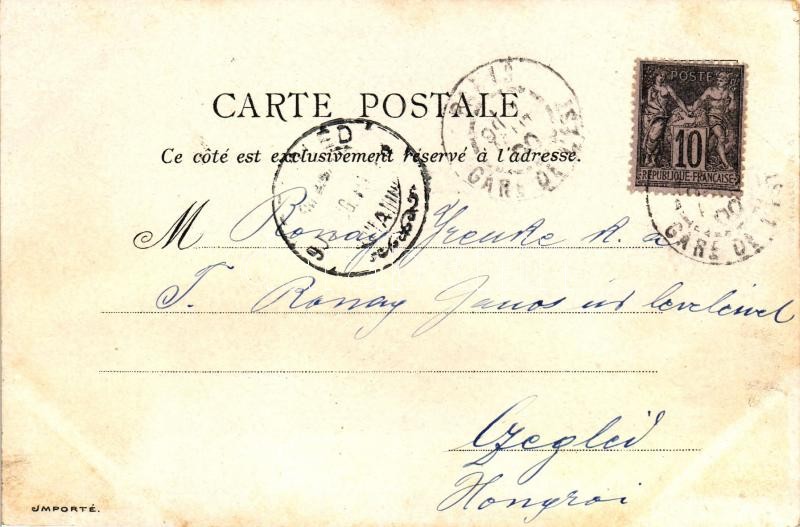 CARTE POSTALE
Ce côté est exclusivement réservé à l'adresse.
POSTE
10
RÉPUBLIQUE FRANÇAISE
PARIS
GARE DE L'EST
GARE DE L'EST
M Ronay K. a
T. Ronay Janos úr
Czegléd
Hongroi
IMPORTÉ.